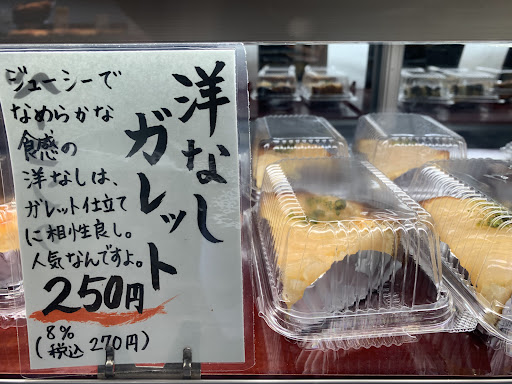 洋なし
ガレット
ジューシーで
なめらかな
食感の
洋なしは、
ガレット仕立て
に相性良し。
人気なんですよ。
250円
8%
(税込 270円)